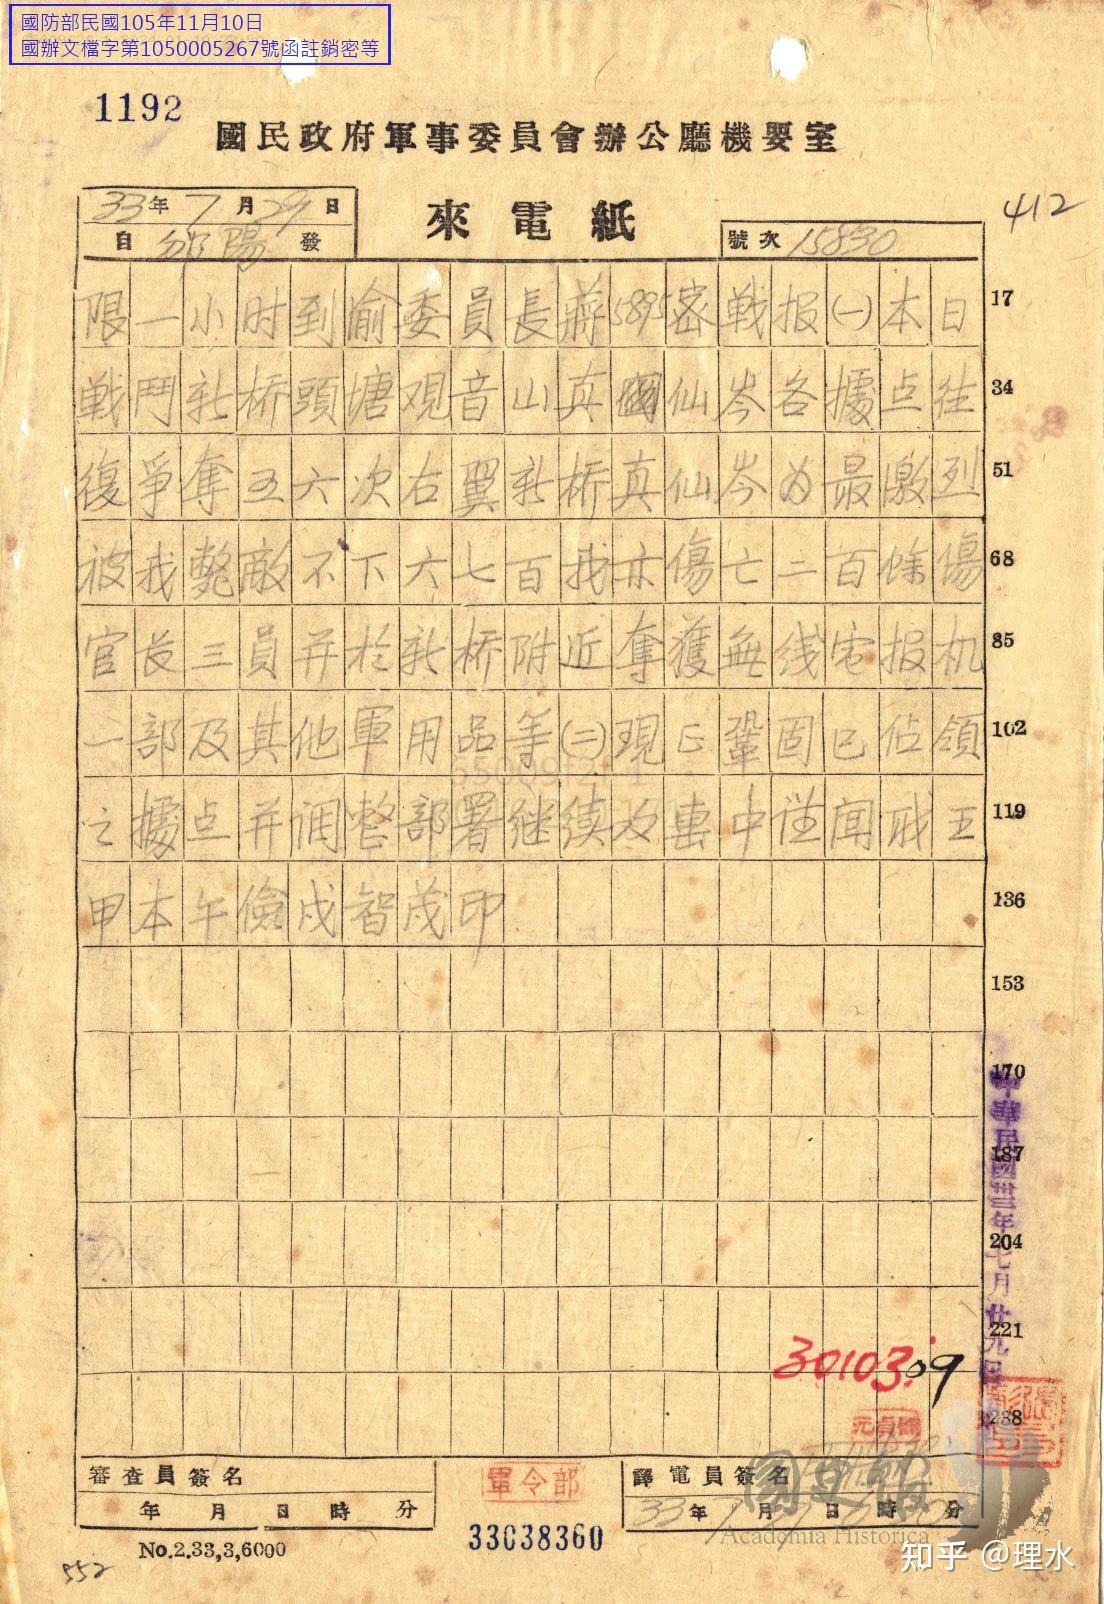 國防部民國105年11月10日
國辦文檔字第1050005267號函註銷密等
1192
國民政府軍事委員會辦公廳機要室
33年7月29日
自邵陽發
來電紙
號次15830
412
限一小时到渝委員長蔣5895密戦报㈠本日 17
戦鬥新桥頭塘观音山真仙岑各據点往 34
復爭奪五六次右翼新桥真仙岑为最激烈 51
被我斃敵不下六七百我亦傷亡二百餘傷 68
官長三員并於新桥附近奪獲無线电报机 85
一部及其他軍用品等㈡現正鞏固已佔領 102
之據点并调整部署继续攻擊中谨闻职王 119
甲本午儉戌智茂印 136
153
170
187
204
221
238
中華民國卅三年七月廿九日
30103.09
審查員簽名
年 月 日 時 分
軍令部
譯電員簽名
33年7月 日 時 分
國史館
Academia Historica
33038360
No.2.33,3,6000
552
知乎 @理水